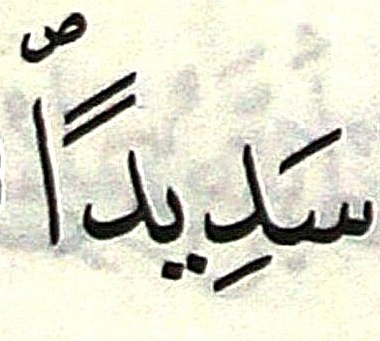 سَدِيدًاۙ